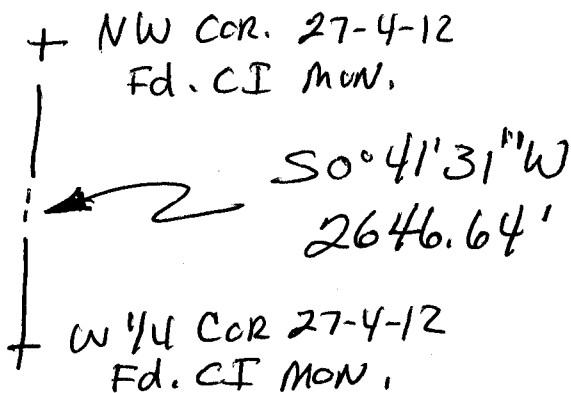 NW COR. 27-4-12
Fd. CI MON.
S0°41'31"W
2646.64'
W 1/4 COR 27-4-12
Fd. CI MON.